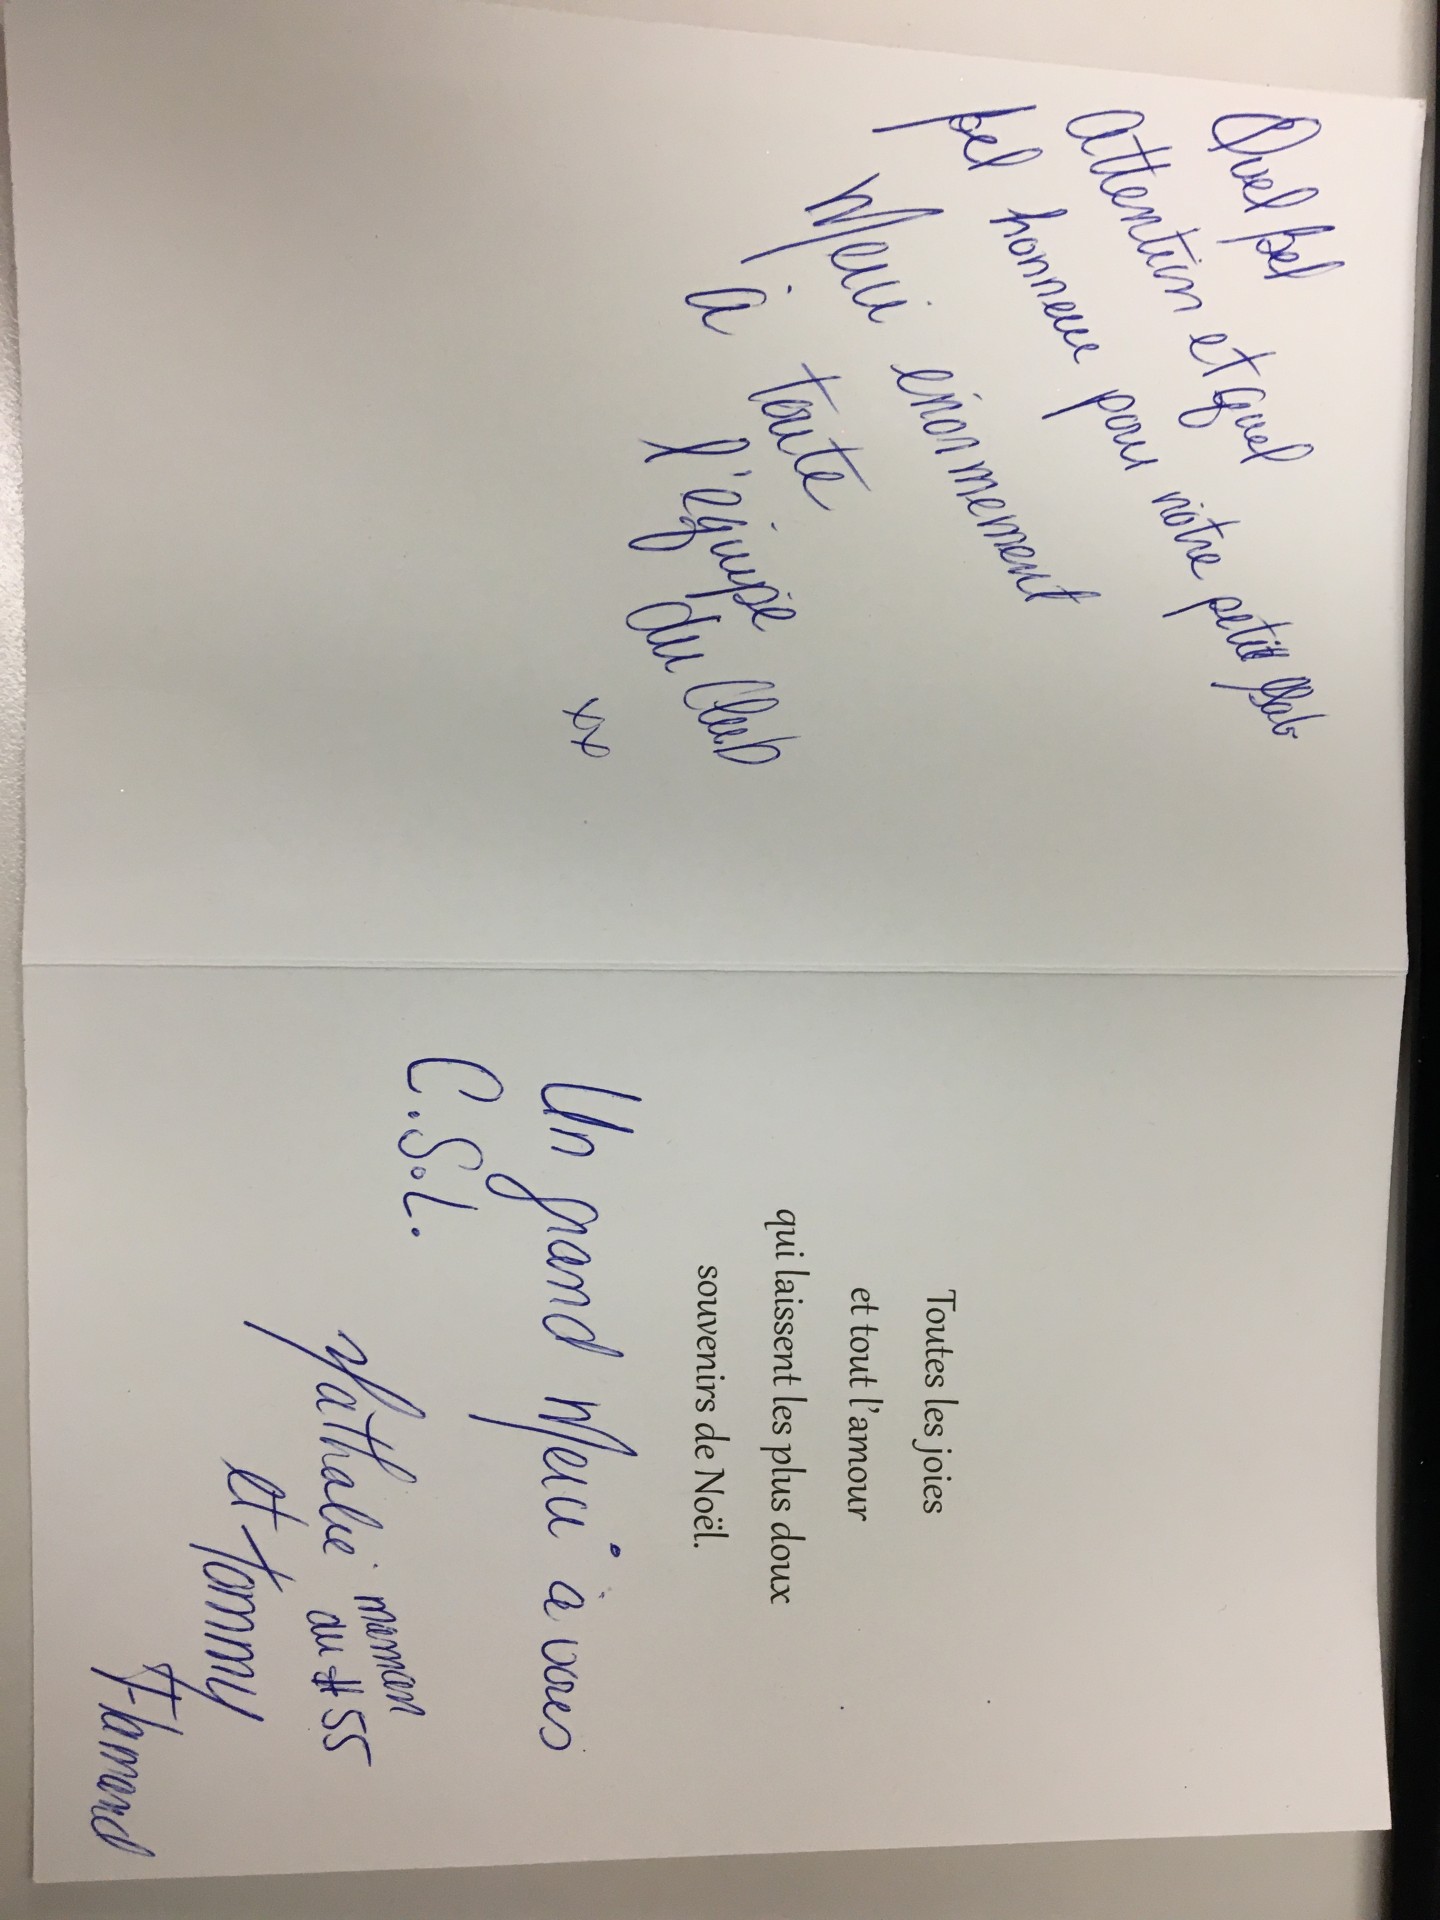 Quel bel
attention et quel
bel honneur pour notre petit
Merci énormément
à toute
l'équipe
du Club
xx
Toutes les joies
et tout l'amour
qui laissent les plus doux
souvenirs de Noël.
Un grand Merci à vous
C.S.L.
Nathalie maman
du #55
et Tommy
Flamand